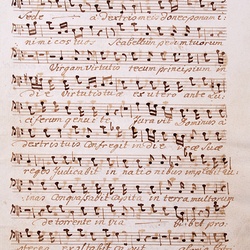 Sede a Dextris meis donec ponam i=
nimicos tuos Scabellum pedum tuorum
Virgam virtutis tecum principium in
die Virtutis tuæ ex utero ante Lu=
ciferum genui te Juravit Dominus a
dextris tuis Confregit in die iræ Suæ
reges Judicabit in nationibus implebit rui=
nas Conquasabit Capita in terra multorum
de torrente in via bibet prop
terea exaltabit caput